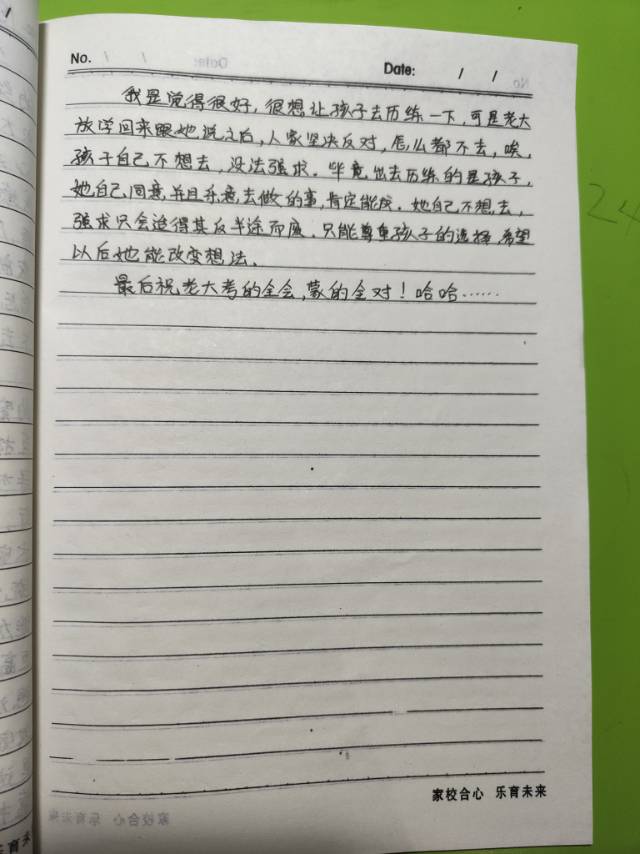 No.
Date: / /
我是觉得很好，很想让孩子去历练一下，可是老大
放学回来跟她说之后，人家坚决反对，怎么都不去，唉，
孩子自己不想去，没法强求。毕竟出去历练的是孩子，
她自己同意并且乐意去做的事，肯定能成。她自己不想去，
强求只会适得其反半途而废。只能尊重孩子的选择，希望
以后她能改变想法。
最后祝老大考的全会，蒙的全对！哈哈……
家校合心 乐育未来
24